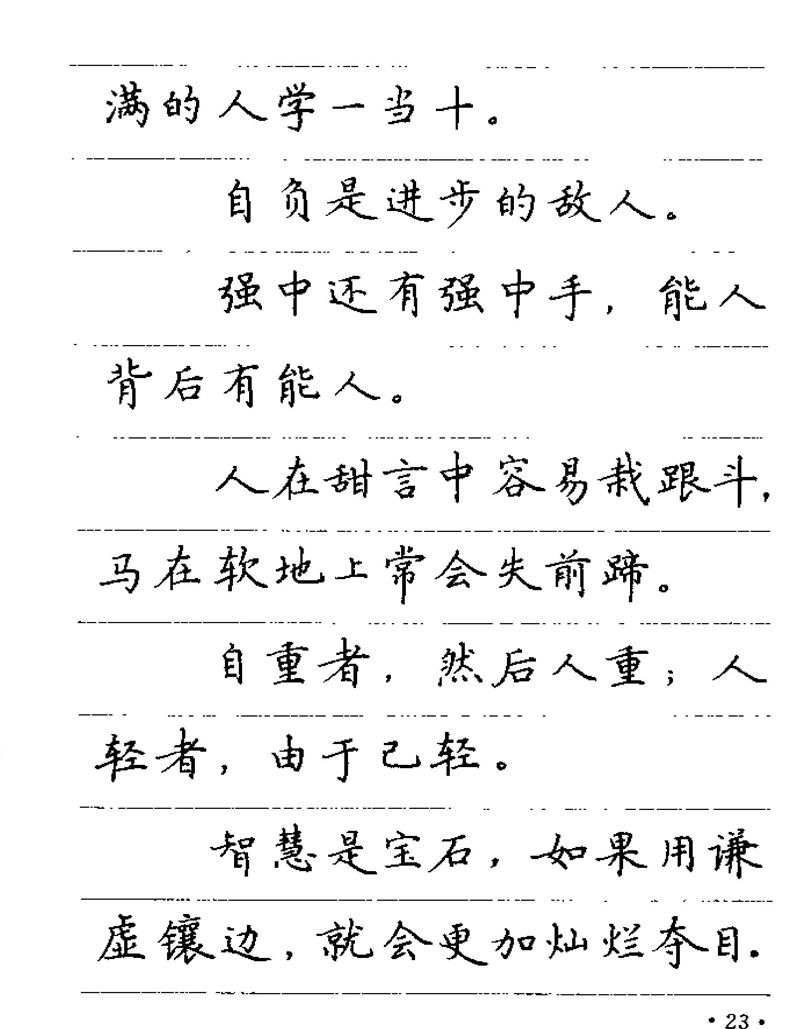 满的人学一当十。
自负是进步的敌人。
强中还有强中手，能人
背后有能人。
人在甜言中容易栽跟斗，
马在软地上常会失前蹄。
自重者，然后人重；人
轻者，由于己轻。
智慧是宝石，如果用谦
虚镶边，就会更加灿烂夺目．
·23·